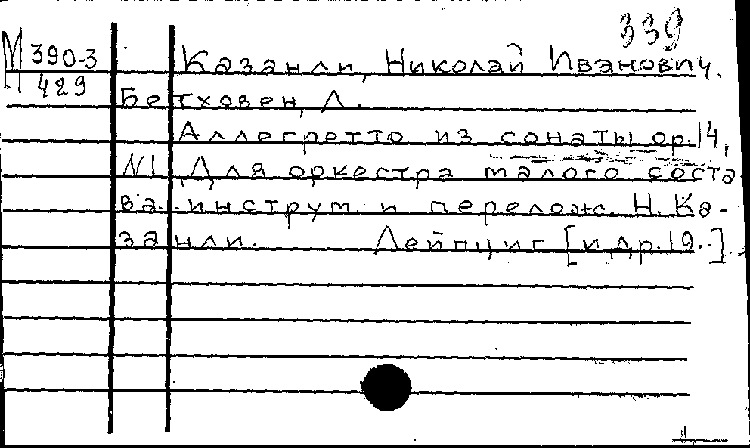 339
М 390-3 Казанли, Николай Иванович.
429
Бетховен, Л.
Аллегретто из сонаты ор.14,
N1. Для оркестра малого соста-
ва инструм. и перелож. Н. Ка-
занли. Лейпциг [и др. 19..]